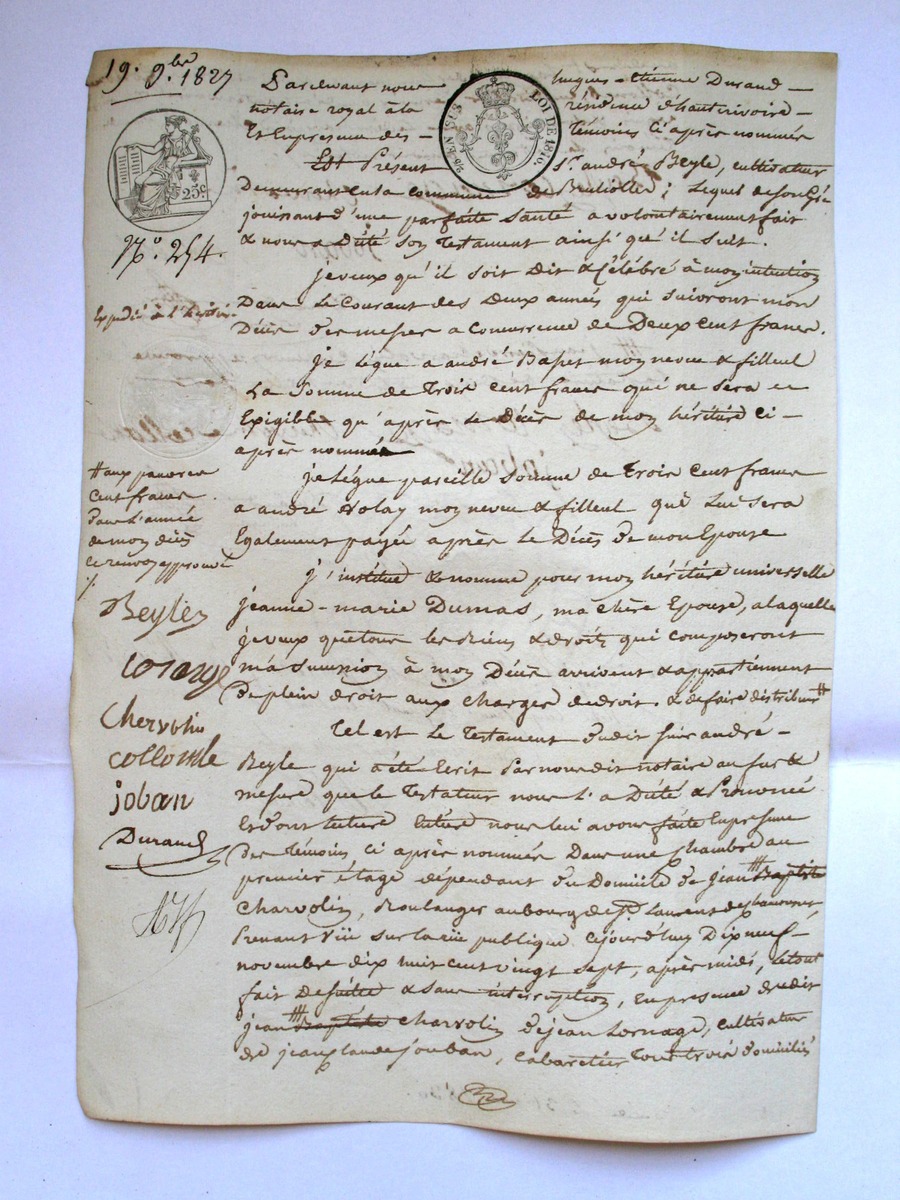 19. 9.bre 1827
Pardevant nous hugues-étienne Durand
notaire royal à la résidence d'hauterivoire
Et En presence des témoins Ci après nommés
Est Présent Sr. andré Beyle, cultivateur
Demeurant En la commune de Brullolles; Lequel
jouissant d'une parfaite Santé a volontairement fait
& nous a Dicté Son Testament ainsi qu'il suit.
25 EN SUS LOI DE 1816.
25c
No. 254.
je veux qu'il soit Dit & Célébré à mon intention
Dans Le Courant des Deux années qui suivront mon
Décès Des messes a Concurrence de Deux cent francs.
Expédié à l'héritière
je Lègue a andré Basset mon neveu & filleul
La Somme de Trois cent francs qui ne sera
Exigible qu'après Le Décès de mon héritière ci-
après nommée
je Lègue pareille Somme de Trois Cent francs
a andré mon neveu & filleul que Lui Sera
Egalement payée après Le Décès de mon Epouse
# aux pauvres
Cent francs
dans L'année
de mon décès
Ce renvoy approuvé
j'institue & nomme pour mon héritière universelle
jeanne-marie Dumas, ma chère Epouse, a laquelle
je veux que tous les Biens & droits qui composeront
ma Succession à mon Décès arrivent & appartiennent
de plein droit aux Charges de droit & de faire distribuer #
Tel est Le Testament dudit Sieur andré-
Beyle qui a été Ecrit Par nous dit notaire au fur &
mesure que le Testateur nous L'a Dicté & Prononcé
Et dont lecture lecture nous lui avons faite En presence
Des Témoins Ci après nommés Dans une chambre au
premier étage dépendant du Domicile de jean Baptiste
Charvolin, Boulanger au bourg de St. Laurent de chamousset
Prenant Vüe sur la rüe publique Cejourd'huy Dix neuf
novembre dix huit cent vingt sept, après midi, Le tout
fait De suitte & sans interruption, En presence dudit
jean Baptiste Charvolin De jean Lornage, Cultivateur
de jean Claude Jouban, Cabaretier Tous trois domiciliés
Beyle
Lornage
Chervolin
collomb
joban
Durand